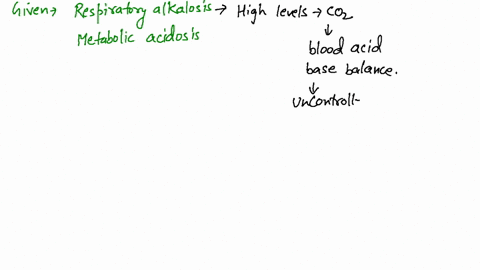 Given → Respiratory alkalosis → High levels → CO2
Metabolic acidosis
↓
blood acid
base balance.
↓
Uncontroll